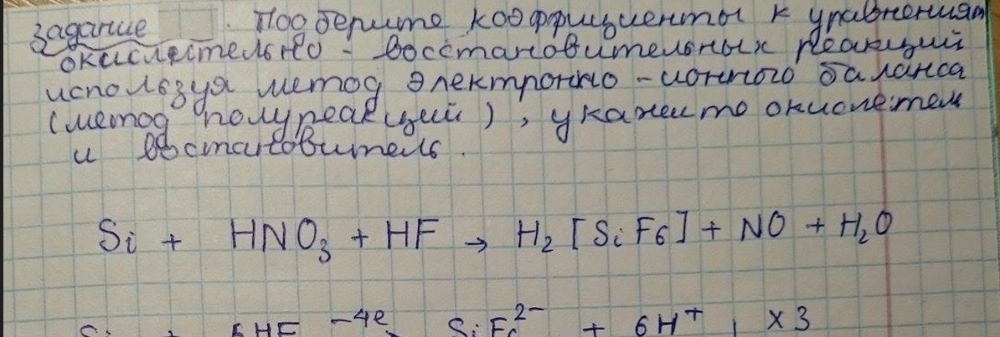 Задание . Подберите коэффициенты к уравнениям
окислительно - восстановительных реакций
используя метод электронно - ионного баланса
(метод полуреакций), укажите окислетель
и востановитель.
Si + HNO₃ + HF → H₂[SiF₆] + NO + H₂O
Si + 6HF −4e SiF₆²⁻ + 6H⁺ | ×3